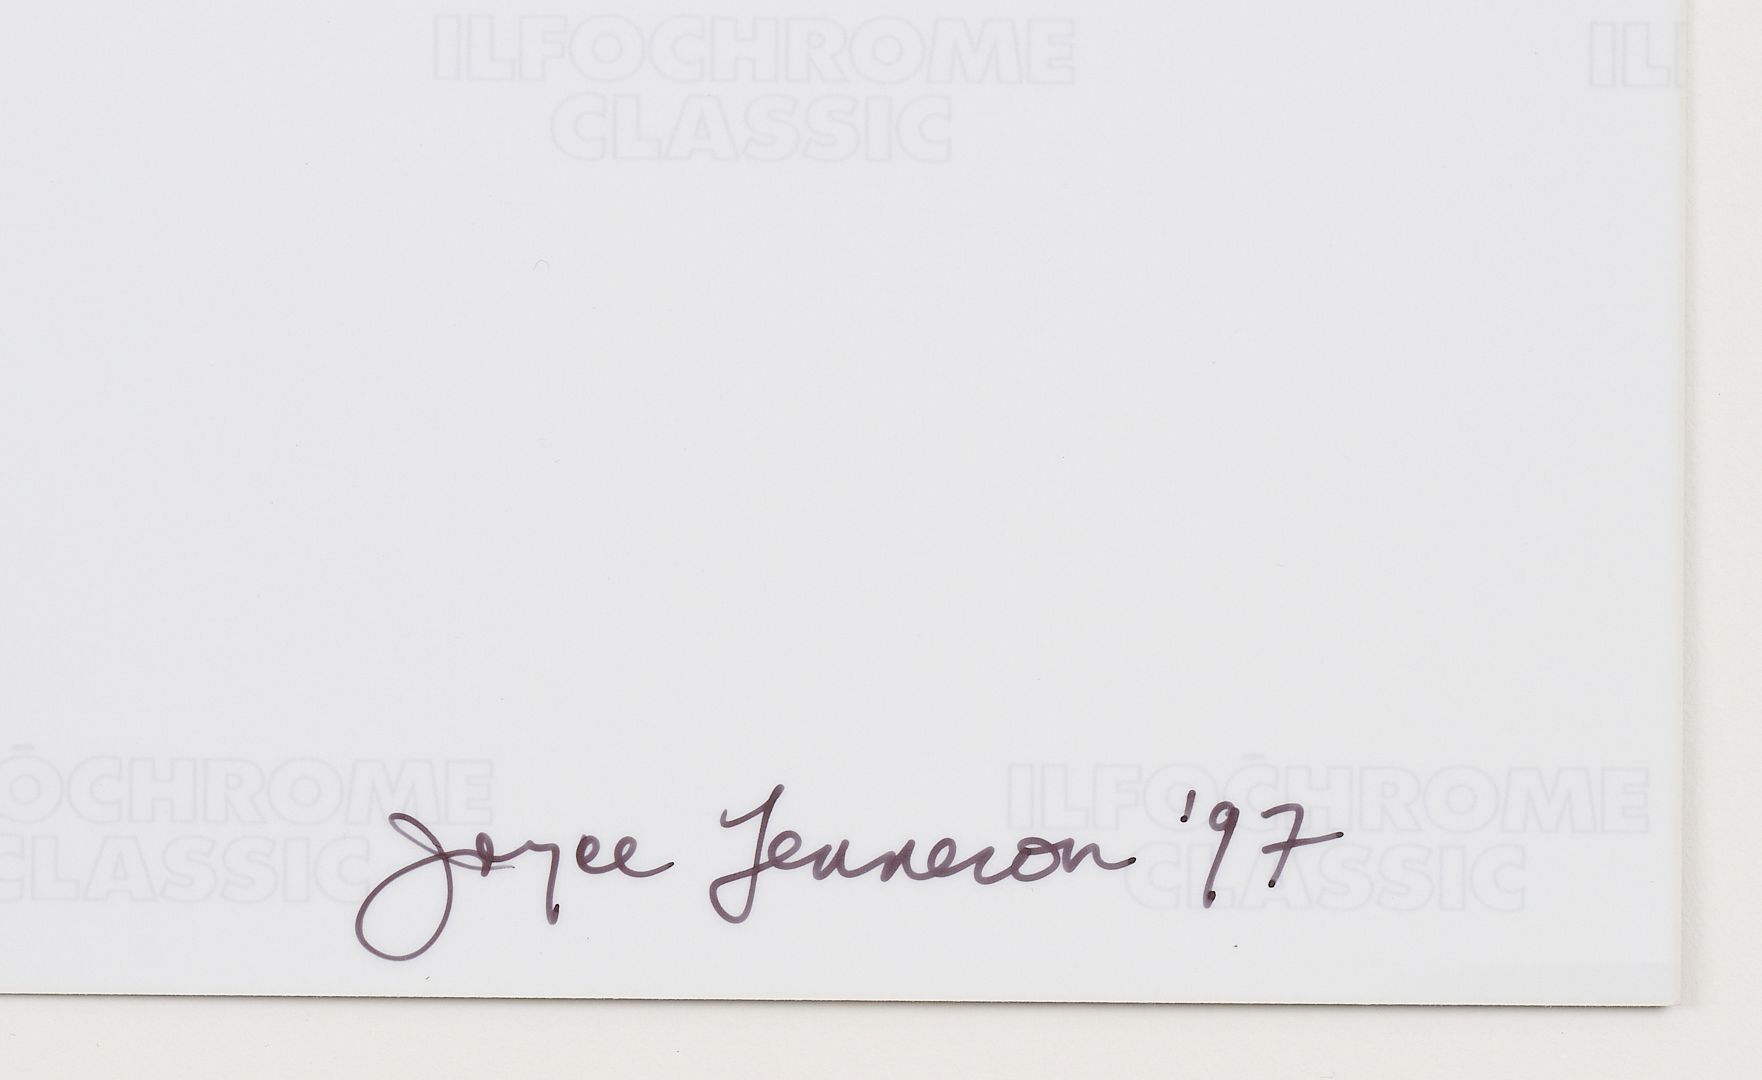 ILFOCHROME IL
CLASSIC
OCHROME ILFOCHROME
CLASSIC CLASSIC
Joyce Tenneson '97